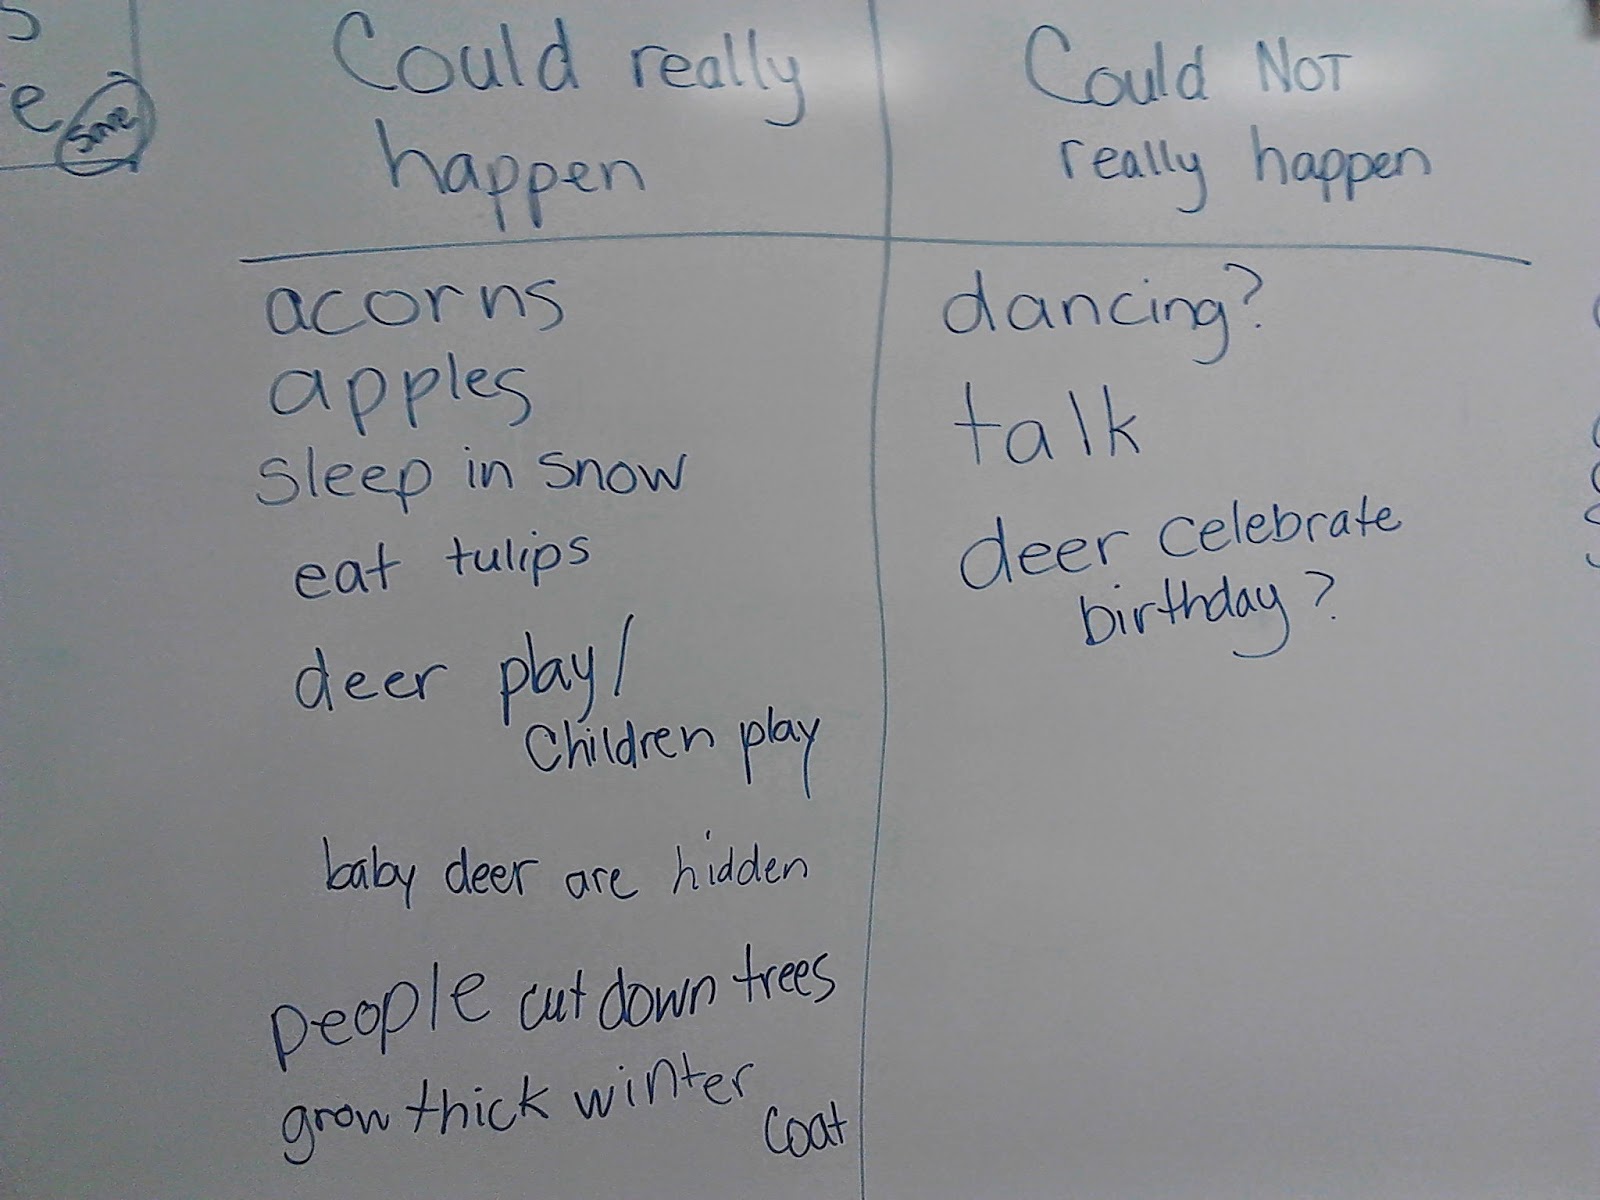 Could really
happen
acorns
apples
sleep in snow
eat tulips
deer play/
Children play
baby deer are hidden
people cut down trees
grow thick winter
coat
Could NOT
really happen
dancing?
talk
deer celebrate
birthday?